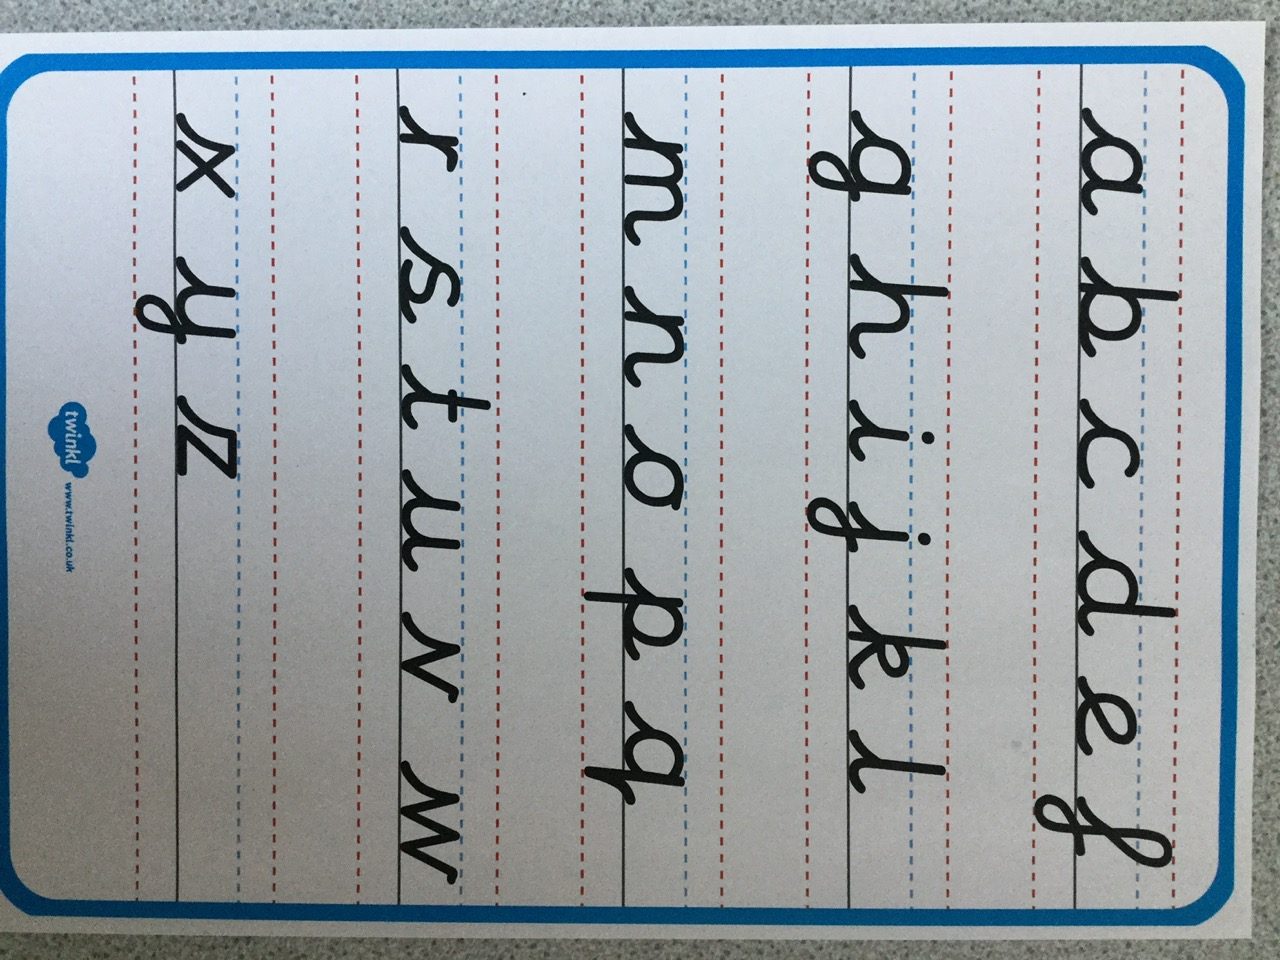 a b c d e f
g h i j k l
m n o p q
r s t u v w
x y z
twinkl www.twinkl.co.uk